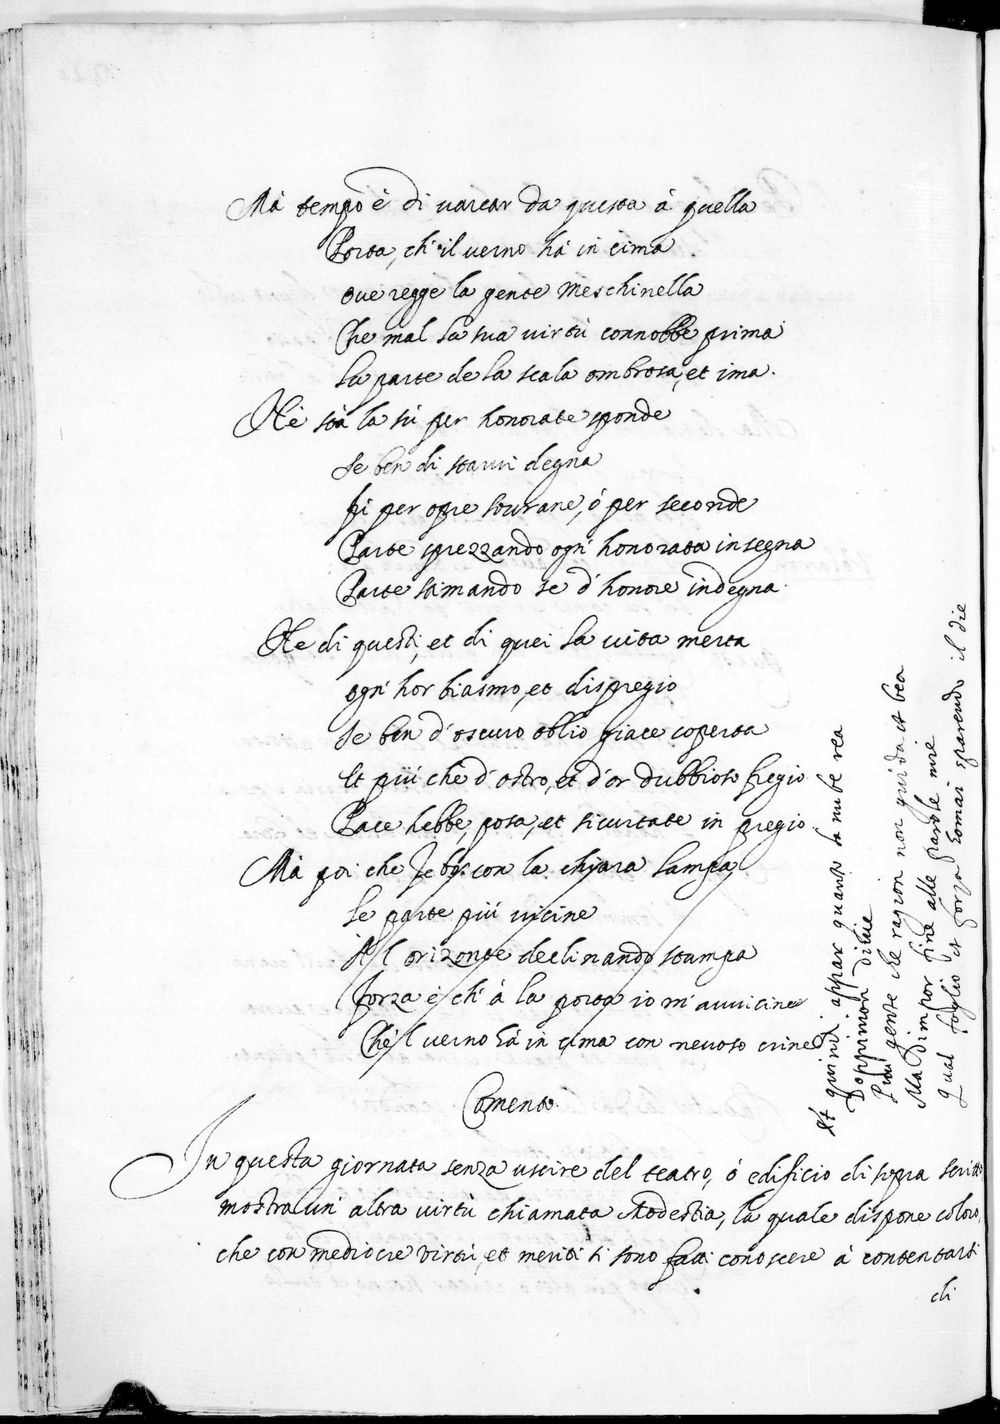 Mà tempo è di varcar da questa à quella
Porta, ch'il verno hà in cima
ove regge la gente meschinella
Che mal la sua virtù connobbe prima
La parte de la scala ombrosa, et ima.
Nè stà la sù per honorate sponde
se ben di starvi degna
fù per opre sovrane, ò per seconde
Parte sprezzando ogn' honorata insegna
Parte stimando se d'honore indegna.
Ne di questi, et di quei la vita merta
ogn' hor biasmo, et dispregio
se ben d'oscuro oblio giace coperta
Et più che d'ostro, et d'or dubbioso fregio
Pace hebbe, posa, et sicurtate in pregio
Mà poi che Febo con la chiara lampa
Le parte più vicine
A l'orizonte declinando stampa
Forza è ch' à la porta io m'avvicine
Che'l verno hà in cima con nevoso crine
Et quindi appar quanto la nube rea
D'oppinion di
Più gente che ragion non guida et bea
Ma d'impor fine alle parole mie
Qual foglio et forza homai sparendo il die
Comento.
In questa giornata senza uscire del teatro, ò edificio di sopra scritto
mostra un' altra virtù chiamata Modestia, la quale dispone coloro,
che con mediocre virtù, et meriti si sono fatti conoscere à contentarsi
di